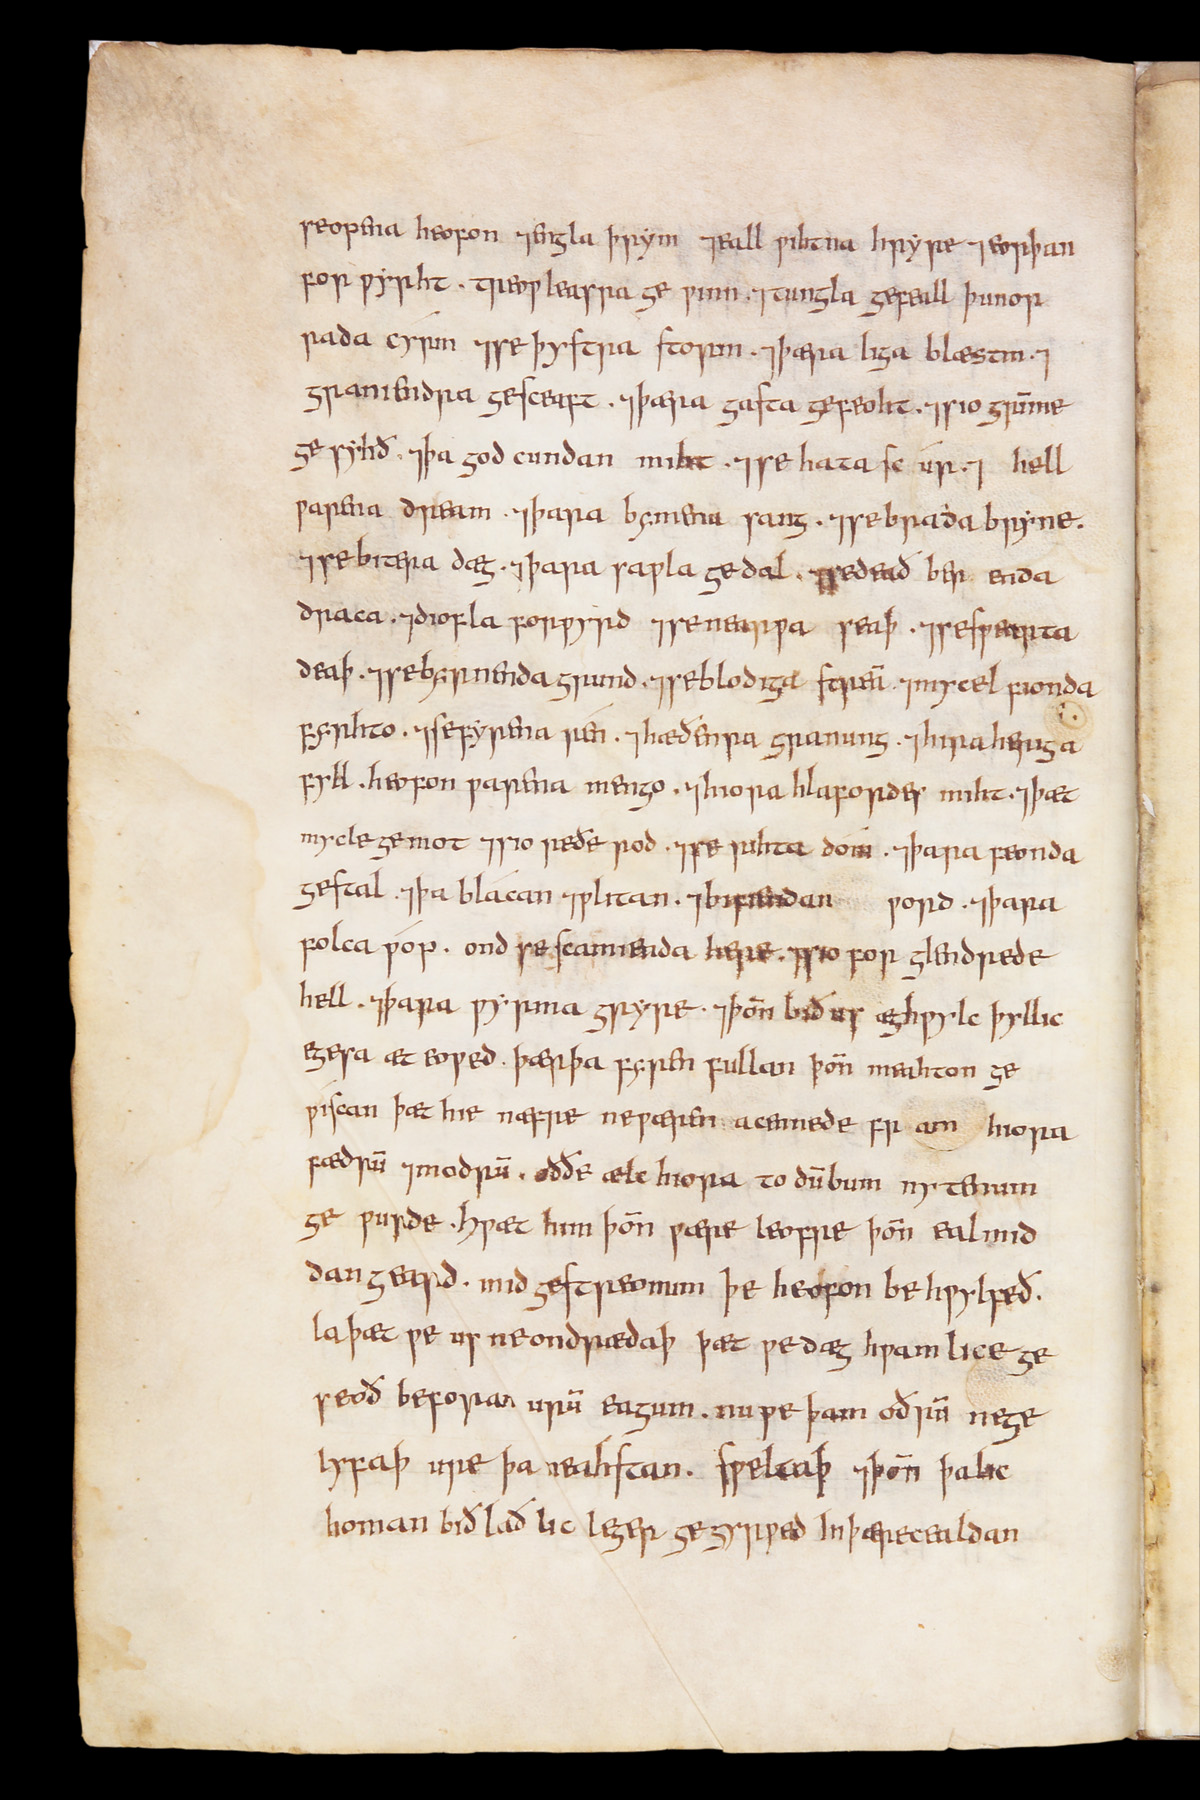 seofena heofon ⁊engla þrym ⁊eall ƿihtna hryre ⁊eorþan
for ƿyrht . treoƿleasra ge ƿinn . ⁊tungla gefeall þunor
rada cyrm ⁊se þystra storm . ⁊þæra liga blæstm . ⁊
graniendra gesceaft . ⁊þæra gasta gefeoht . ⁊sio grim̄me
ge syhð . ⁊þa god cundan miht . ⁊se hata sc úr . ⁊ hell
ƿarena dream . ⁊þara bymena sang . ⁊se brada bryne .
⁊se bitera dæg . ⁊þara saƿla ge dal . ⁊se deað ber enda
draca . ⁊diofla forƿyrd ⁊se nearƿa seaþ . ⁊se sƿearta
deaþ . ⁊se byrnenda grund . ⁊se blodiga streā . ⁊mycel fionda
fyrhto . ⁊se fyrena ren . ⁊hæðenra granung . ⁊hira heriga
fyll . heofon ƿarena mengo . ⁊hiora hlafordes miht . ⁊þæt
mycle ge mot ⁊sio reðe rod . ⁊se rihta dom . ⁊þara feonda
gestal . ⁊þa blácan ⁊ƿlitan . ⁊bifiendan ƿord . ⁊þara
folca ƿóp . ond se scamienda here . ⁊sio for glendrede
hell . ⁊þara ƿyrma gryre . ⁊þon̄ bið us æghƿylc þyllic
egesa æt eoƿed . þær þa fyren fullan þon̄ meahton ge
ƿiscan þæt hie næfre ne ƿæren acennede fr am hiora
fædrū ⁊modrū . oððe ælc hiora to dūbum nytenum
ge ƿurde . hƿæt him þon̄ ƿære leofre þon̄ eal mid
dan geard . mid gestreonum þe heofon be hƿylfeð .
la þæt ƿe us ne ondrædaþ þæt ƿe dæg hƿam lice ge
seoð beforan urū eagum . nu ƿe þam oðrū ne ge
lyfaþ ure þa neahstan . sƿeltaþ ⁊þon̄ þa lic
homan bið lað lic leger ge gyrƿed In þære cealdan